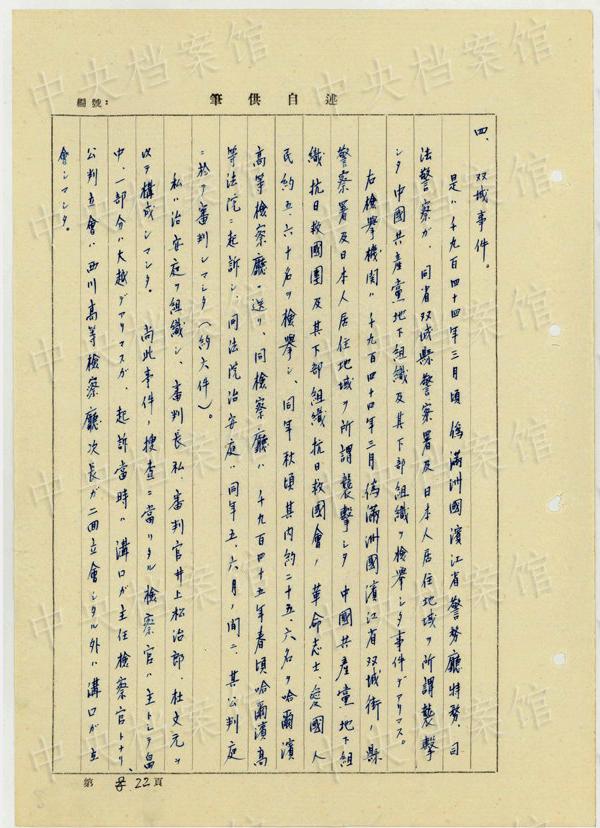 編號：
筆供自述
四、双城事件。
是ハ千九百四十四年三月頃偽滿洲國濱江省警務廳特務、司
法警察ガ、同省双城縣警察署及日本人居住地域ヲ所謂襲撃
シタ中國共産黨地下組織及其下部組織ヲ檢擧シタ事件デアリマス。
右檢擧機関ハ千九百四十四年三月偽滿洲國濱江省双城街ノ縣
警察署及日本人居住地域ヲ所謂襲撃シタ中國共産黨地下組
織抗日救國團及其下部組織抗日救國會ノ革命志士、愛國人
民約五、六十名ヲ檢擧シ、同年秋頃其内約二十五、六名ヲ哈爾濱
高等檢察廳ニ送リ、同檢察廳ハ千九百四十五年春頃哈爾濱高
等法院ニ起訴シ、同法院治安庭ハ同年五、六月ノ間ニ、其公判庭
ニ於テ審判シマシタ（約六件）。
私ハ治安庭ヲ組織シ、審判長私、審判官井上松治郎、杜文元ヲ
以テ構成シマシタ。尚此事件ノ搜査ニ當リタル檢察官ハ主トシテ畠
中、一部分ハ大越デアリマスガ、起訴當時ハ溝口ガ主任檢察官トナリ、
公判立會ハ西川高等檢察廳次長ガ二回立會シタル外ハ溝口ガ立
會シマシタ。
第 22 頁
中央档案馆